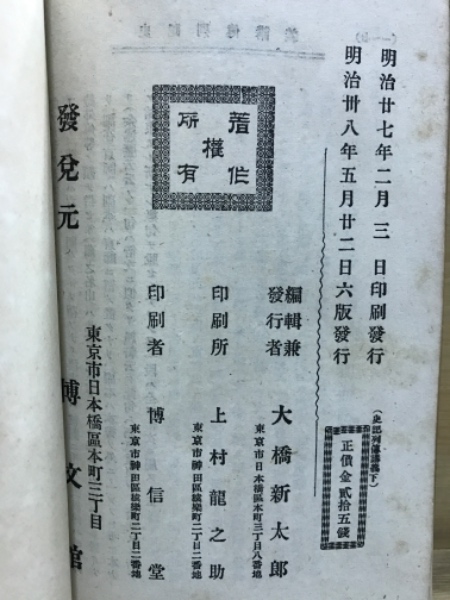 明治廿七年二月三日印刷發行
明治卅八年五月廿二日六版發行
(史記列傳講義下)
正價金貳拾五錢
著作
權
所有
編輯兼
發行者
大橋新太郎
東京市日本橋區本町三丁目八番地
印刷所
上村龍之助
東京市神田區猿樂町二丁目二番地
印刷者
博信堂
東京市神田區猿樂町二丁目二番地
發兌元
東京市日本橋區本町三丁目
博文館